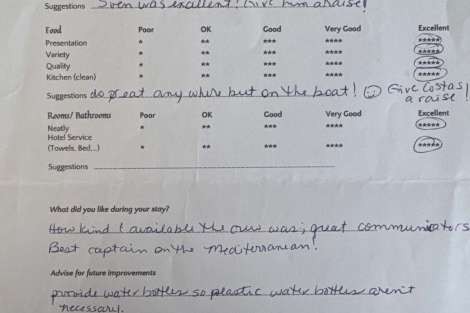 Suggestions Sven was excellent! Give him a raise!
Food Poor OK Good Very Good Excellent
Presentation * ** *** **** *****
Variety * ** *** **** *****
Quality * ** *** **** *****
Kitchen (clean) * ** *** **** *****
Suggestions do not eat any where but on the boat! ☺ Give Costas
a raise!
Rooms/ Bathrooms Poor OK Good Very Good Excellent
Neatly * ** *** **** *****
Hotel Service
(Towels, Bed,..) * ** *** **** *****
Suggestions
What did you like during your stay?
How kind & available the crew was; great communicators
Best captain on the Mediterranean!
Advise for future improvements
provide water bottles so plastic water bottles aren't
necessary.